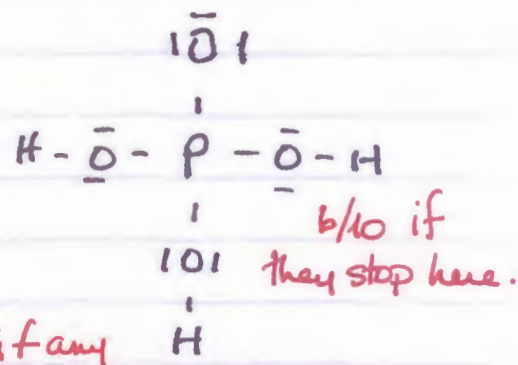 |O|
H - O - P - O - H
6/10 if
|O| they stop here.
if any H